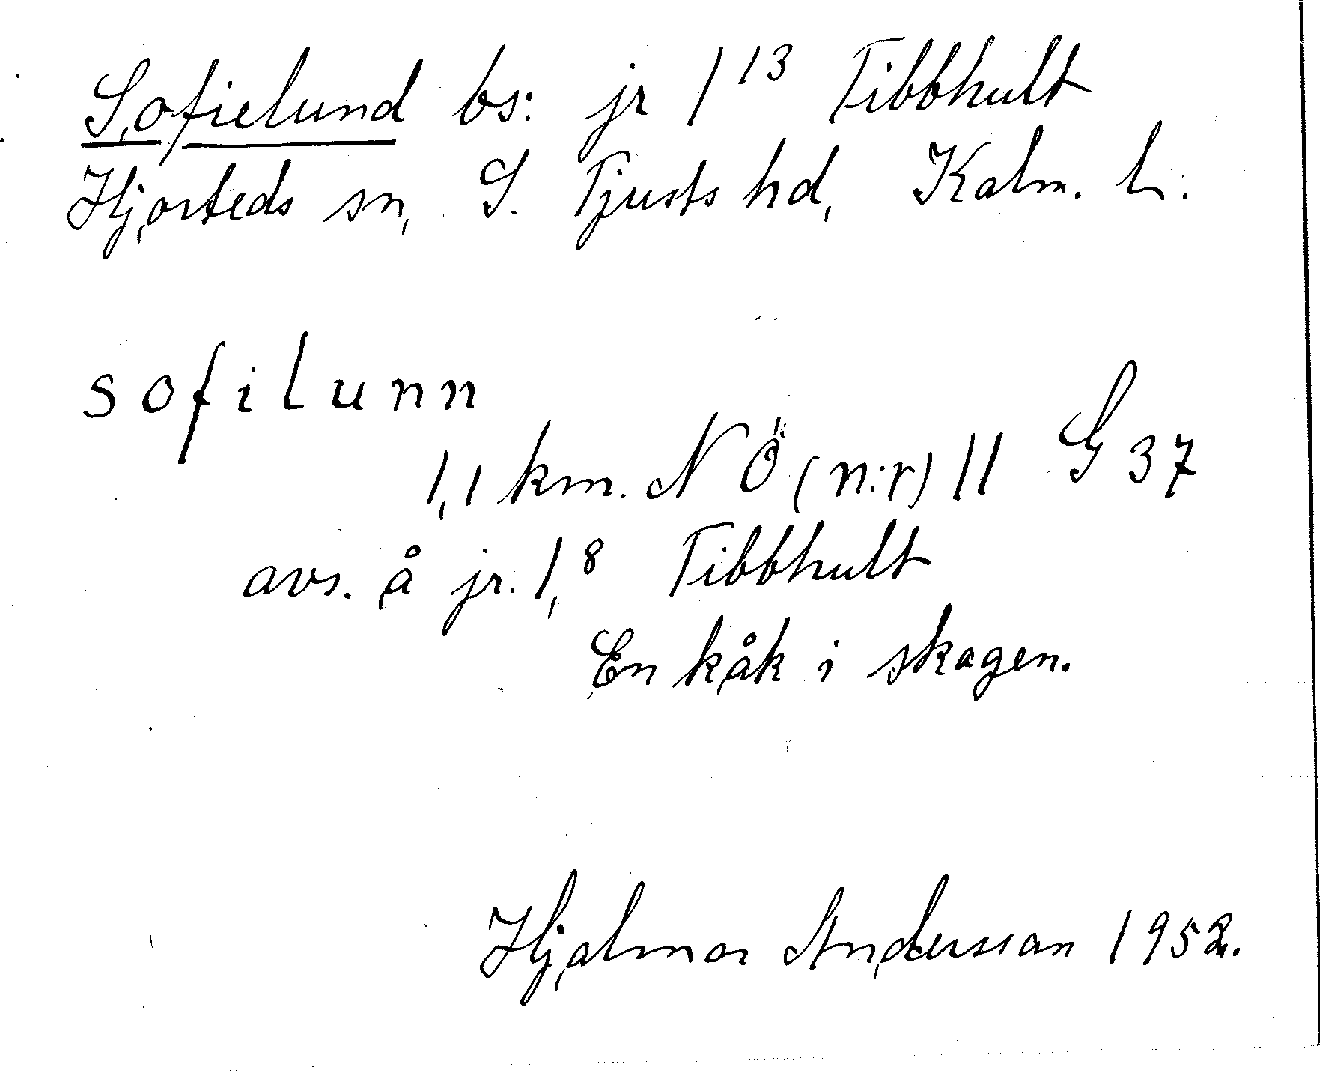 Sofielund bs: jr 1¹³ Tibbhult
Hjorteds sn, S. Tjusts hd, Kalm. l:
sofilunn
1,1 km. NÖ (n:r) 11 G 37
avs. å jr. 1,⁸ Tibbhult
En kåk i skogen.
Hjalmar Andersson 1952.